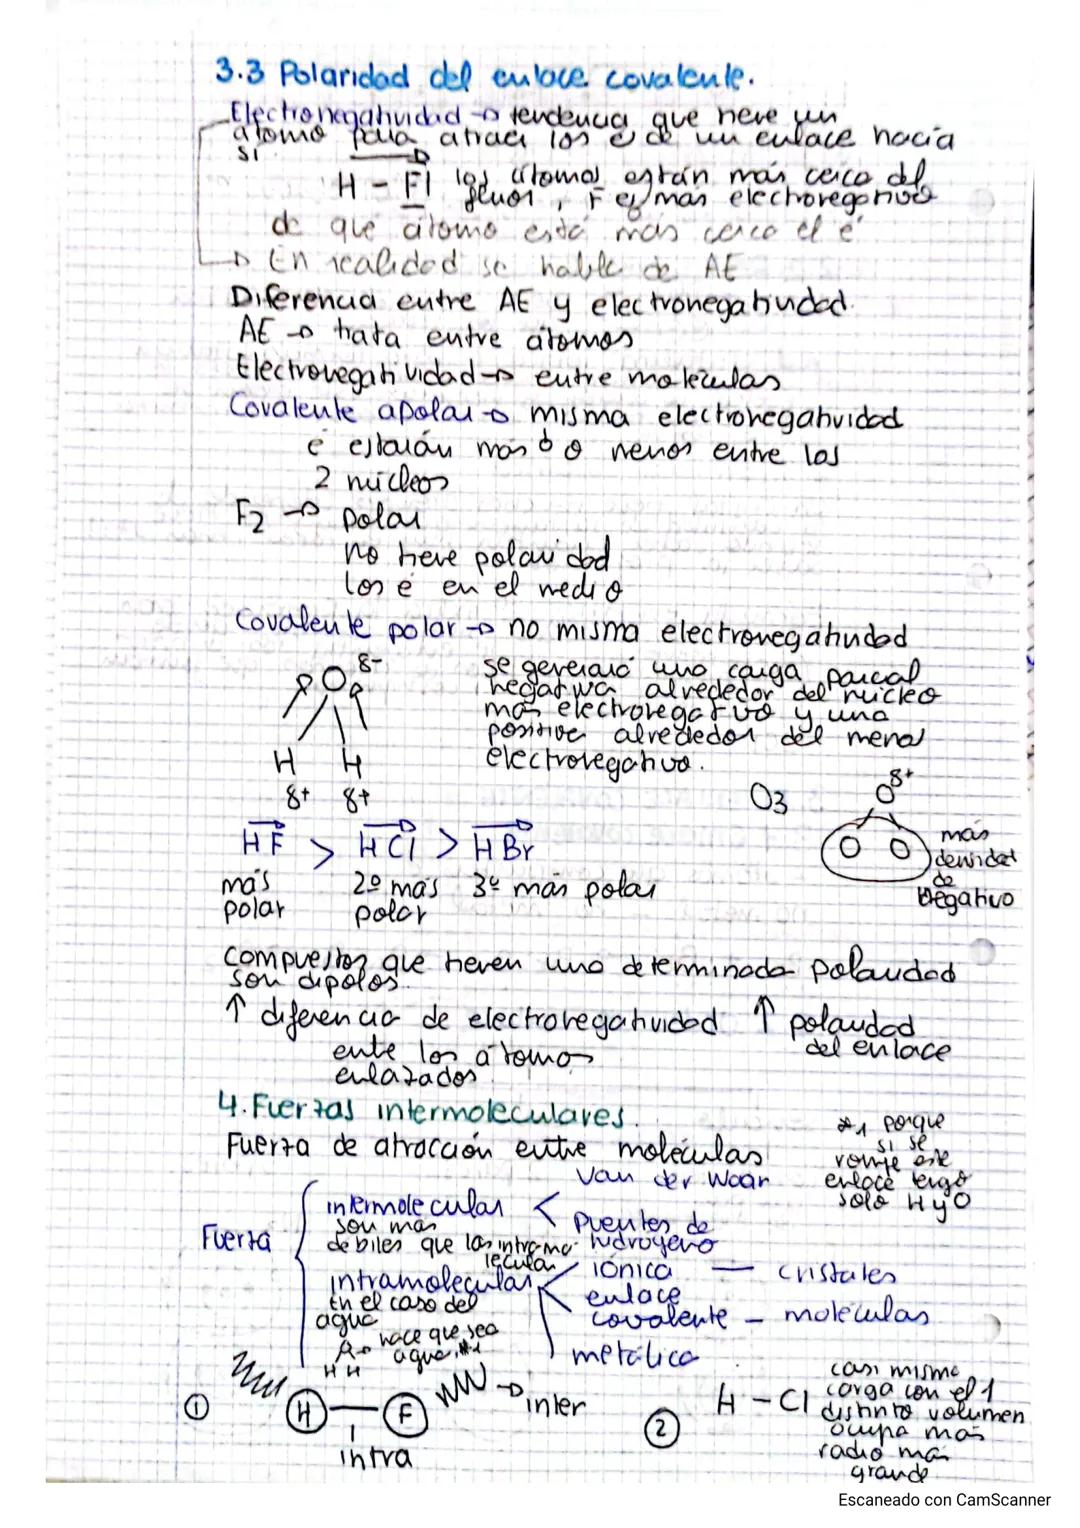 3.3 Polaridad del enlace covalente.
Electronegatividad → tendencia que tiene un
átomo para atraer los e⁻ de un enlace hacia
sí
H - Fl los átomos están más cerca del
fluor, F es más electronegativo
de que átomo está más cerca el e⁻
→ En realidad se habla de AE
Diferencia entre AE y electronegatividad.
AE → trata entre átomos
Electronegatividad → entre moléculas
Covalente apolar → misma electronegatividad
e⁻ estarán más o menos entre los
2 núcleos
F2 → polar
no tiene polaridad
los e⁻ en el medio
Covalente polar → no misma electronegatividad
O δ-
H H
δ+ δ+
se generará una carga parcial
negativa alrededor del núcleo
más electronegativo y una
positiva alrededor del menos
electronegativo.
O3
O δ+
O O
más
densidad
de
negativo
HF > HCl > HBr
más polar
2º más polar
3º más polar
Compuestos que tienen una determinada polaridad
son dipolos.
↑ diferencia de electronegatividad ↑ polaridad
del enlace
ente los átomos
enlazados
4. Fuerzas intermoleculares.
Fuerza de atracción entre moléculas
*1 porque
si se
rompe este
enlace tengo
solo H y O
Fuerza
intermolecular < Van der Waar
puentes de
hidrógeno
son más
débiles que las intramo-
lecular
intramolecular
iónica — cristales
enlace
covalente - moléculas
metálica
En el caso del
agua
H H
hace que sea
agua *1
① H - F → inter
intra
② H - Cl
casi misma
carga con el 1
distinto volumen
ocupa más
radio más
grande
Escaneado con CamScanner